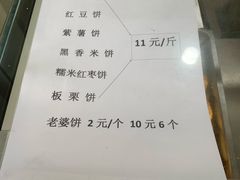 红豆饼
紫薯饼
黑香米饼
11元/斤
糯米红枣饼
板栗饼
老婆饼 2元/个 10元6个